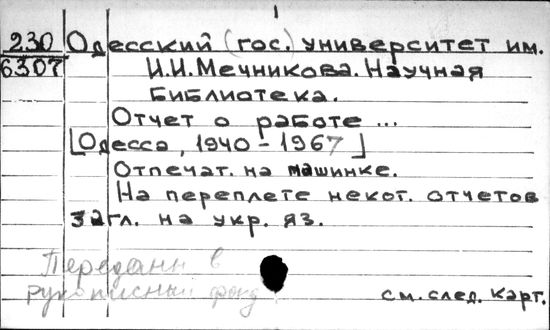 230
6307
Одесский (гос.) университет им.
И.И.Мечникова. Научная
библиотека.
Отчет о работе ...
[Одесса, 1940-1967]
Отпечат. на машинке.
На переплете некот. отчетов
загл. на укр. яз.
Переданы в
рукописный фонд
см. след. карт.